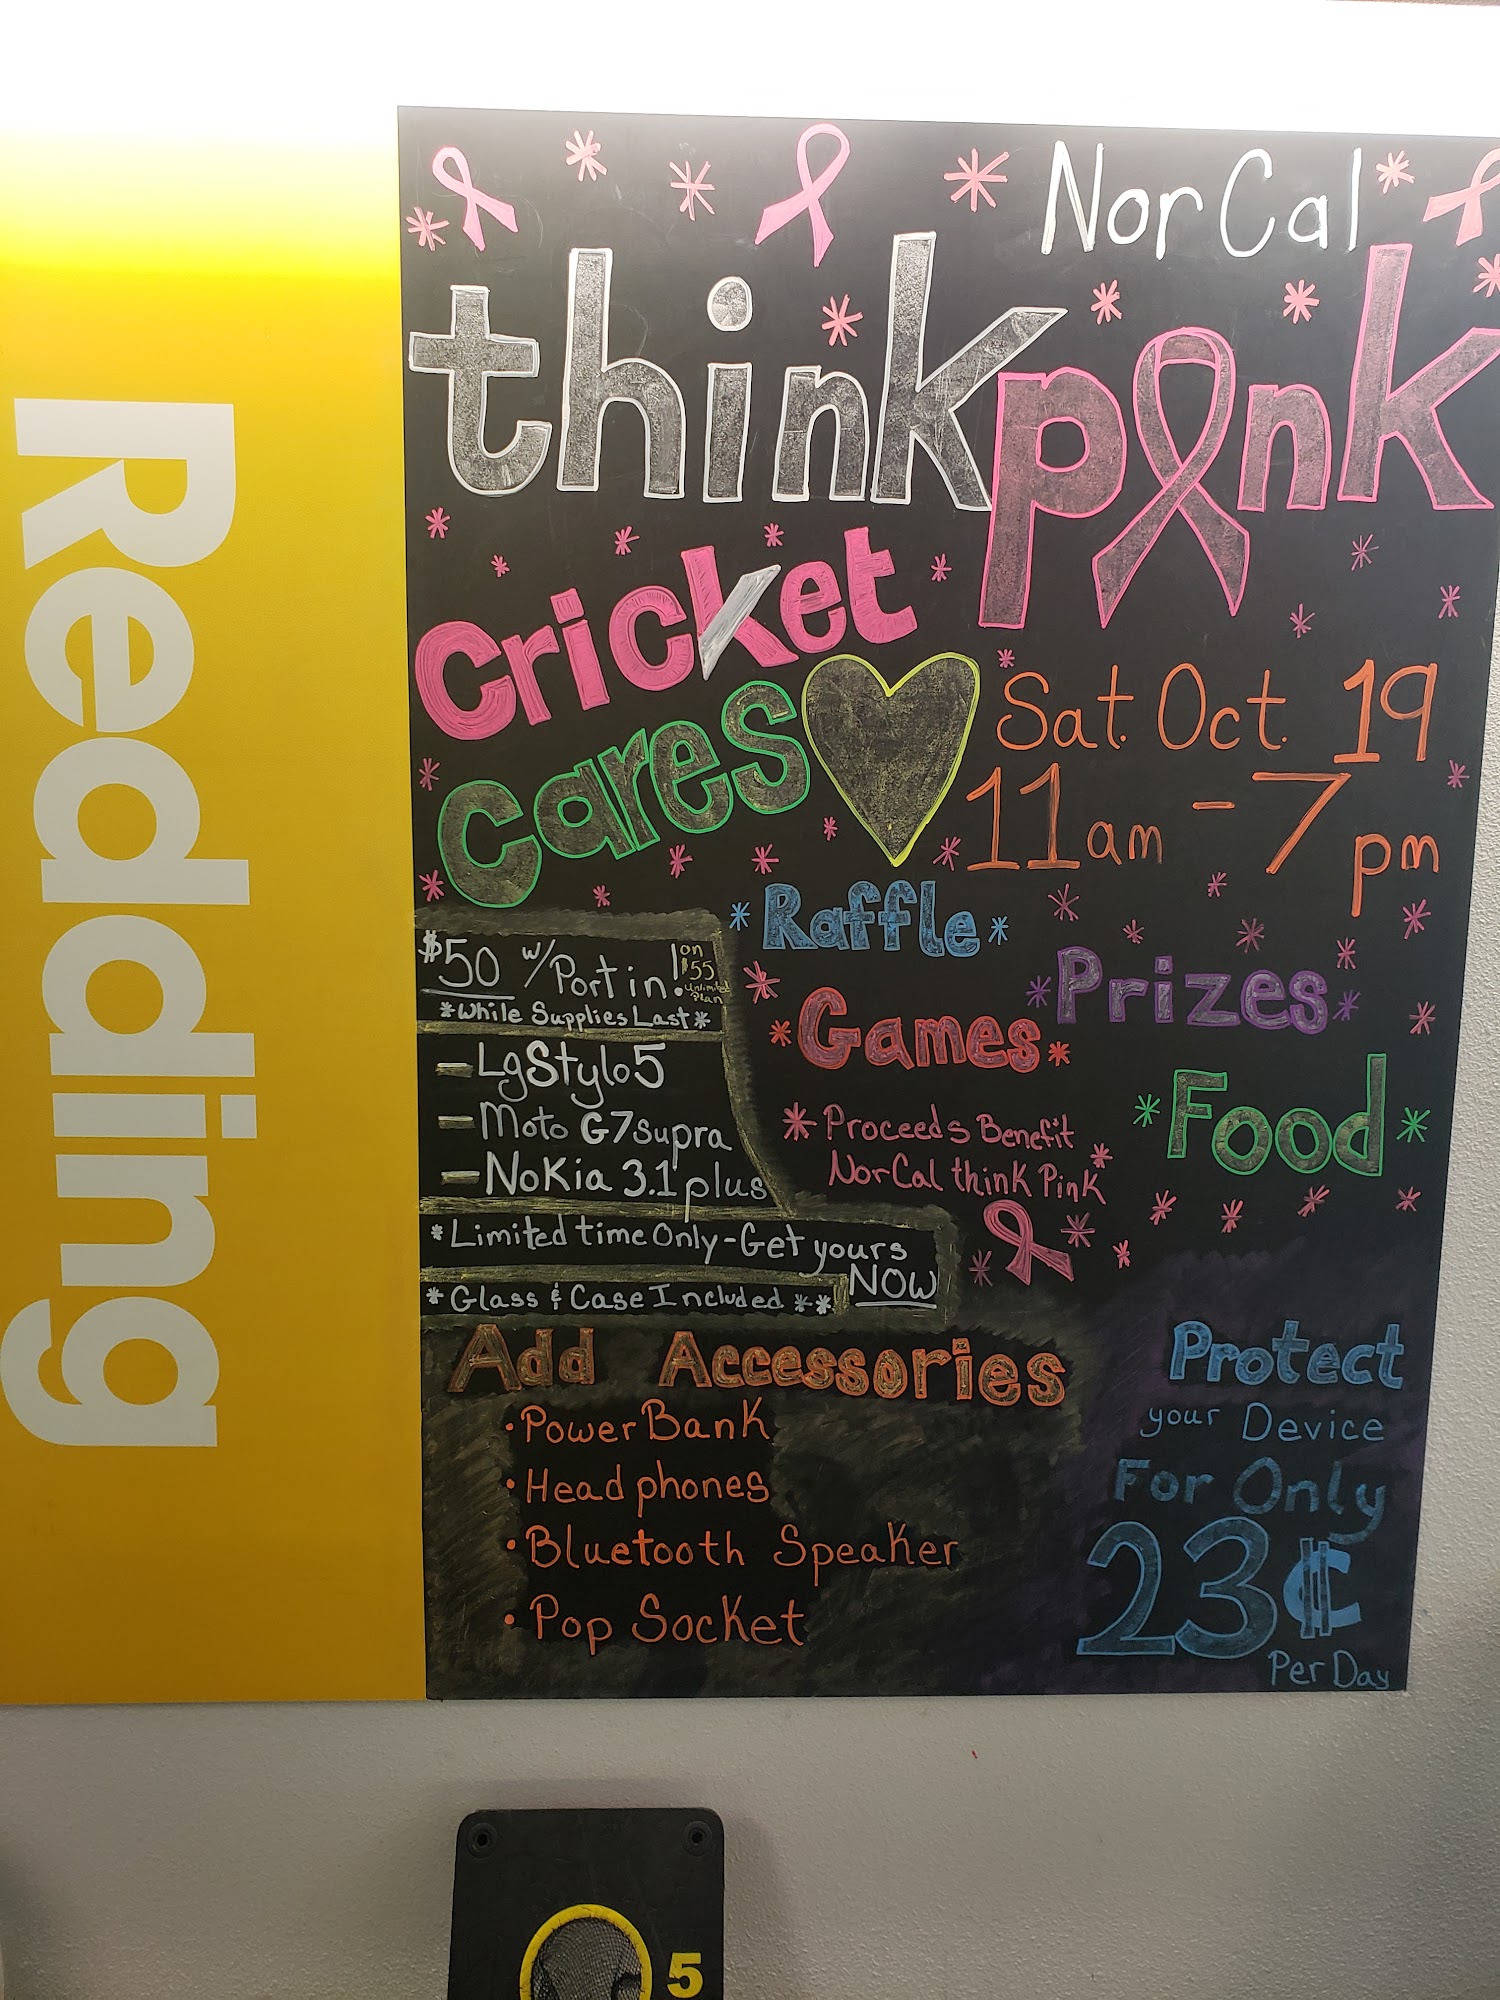 Redding
NorCal
think pink
Cricket
Cares
Sat. Oct. 19
11am - 7pm
*Raffle*
*Prizes*
*Games*
*Food*
* Proceeds Benefit
NorCal think Pink
$50 w/ Port in! on $55 Unlimited Plan
*While Supplies Last*
- Lg Stylo 5
- Moto G7 supra
- Nokia 3.1 plus
*Limited time Only - Get yours
NOW
* Glass & Case Included **
Add Accessories
• Power Bank
• Headphones
• Bluetooth Speaker
• Pop Socket
Protect
your Device
For Only
23¢
Per Day
5